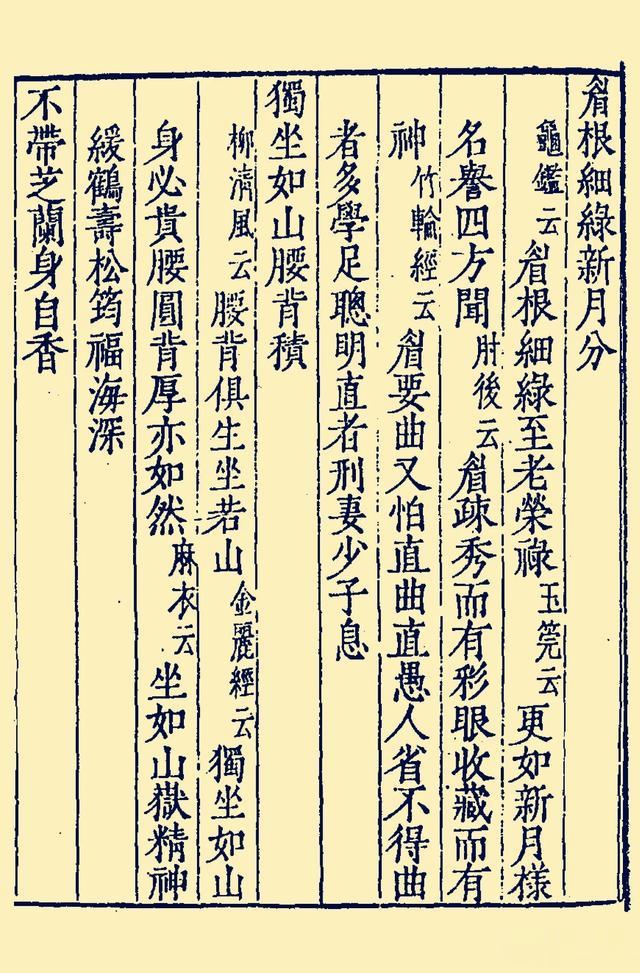 眉根細綠新月分
龜鑑云眉根細綠至老榮祿玉筦云更如新月樣
名譽四方聞肘後云眉疎秀而有彩眼收藏而有
神竹輪經云眉要曲又怕直曲直愚人省不得曲
者多學足聰明直者刑妻少子息
獨坐如山腰背積
柳淸風云腰背俱生坐若山金麗經云獨坐如山
身必貴腰圓背厚亦如然麻衣云坐如山嶽精神
緩鶴壽松筠福海深
不帶芝蘭身自香